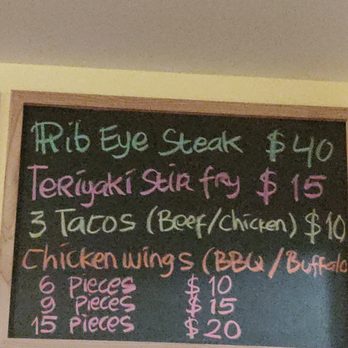 Rib Eye Steak $40
Teriyaki Stir fry $15
3 Tacos (Beef/Chicken) $10
Chicken wings (BBQ/Buffalo
6 Pieces $10
9 Pieces $15
15 Pieces $20